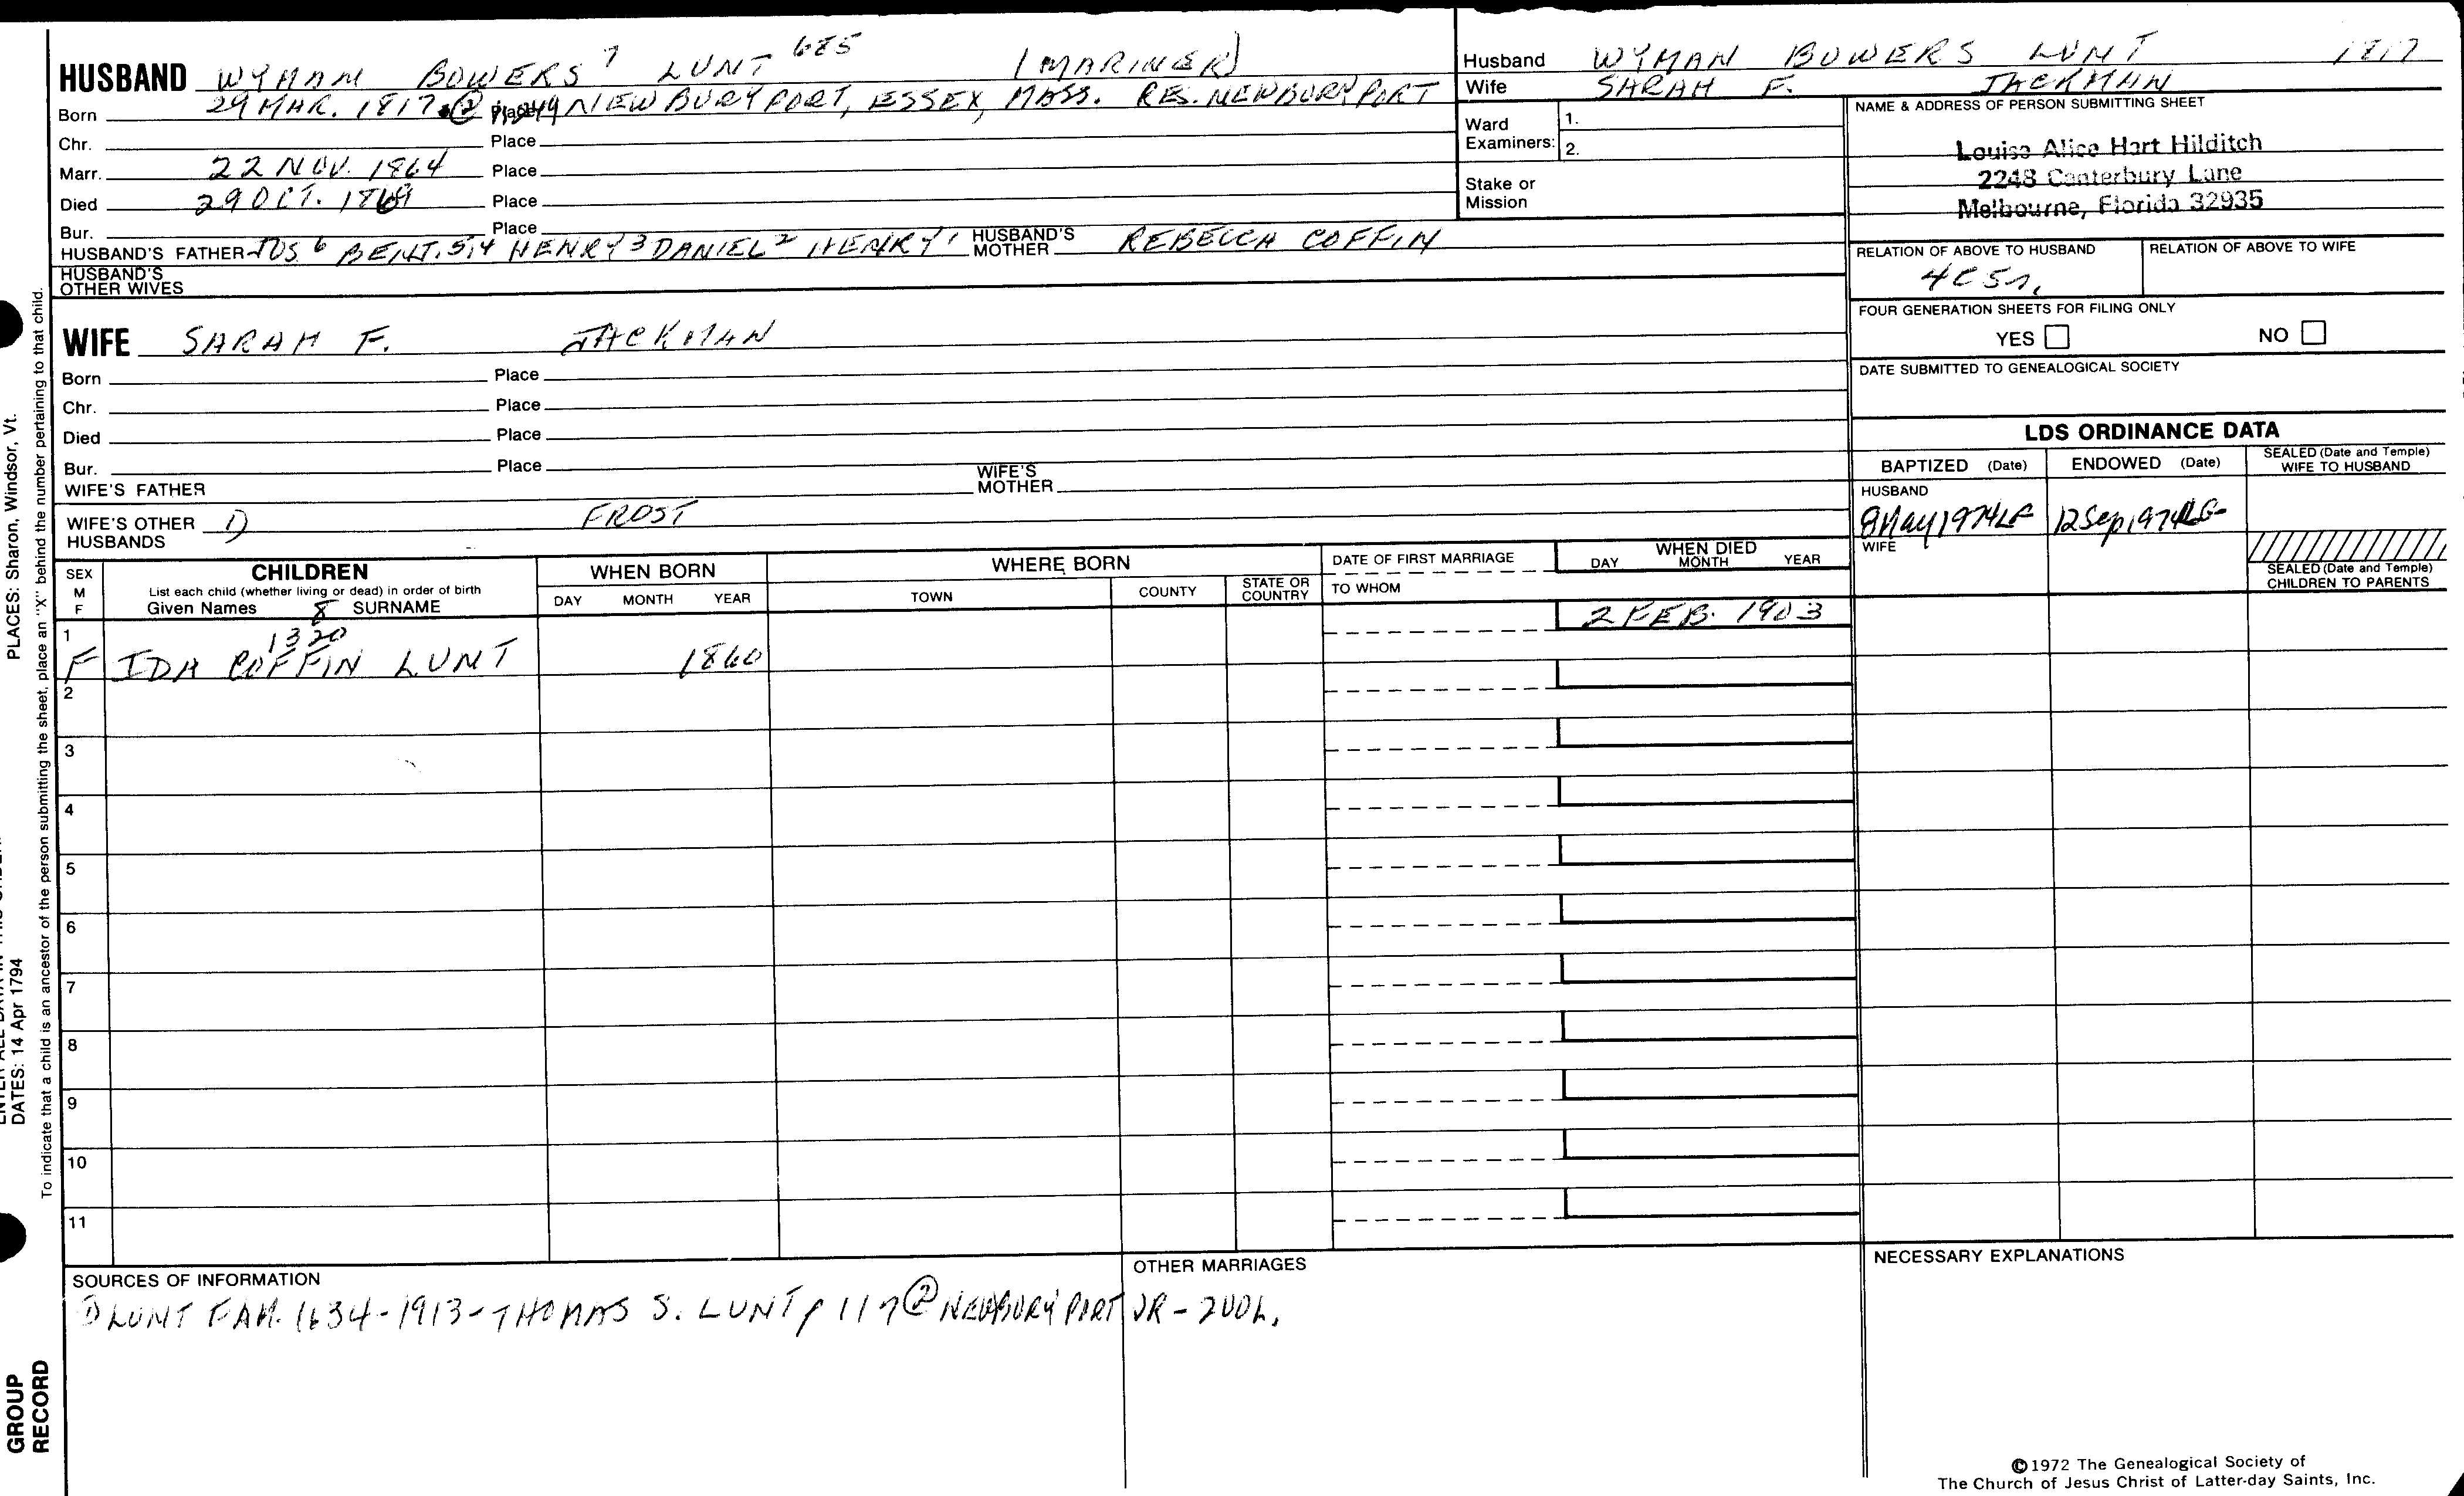 HUSBAND WYMAN BOWERS 7 LUNT 685 (MARINER)
Born 29 MAR. 1817 ② Place NEWBURYPORT, ESSEX, MASS. RES. NEWBURYPORT
Chr. Place
Marr. 22 NOV. 1864 Place
Died 29 OCT. 1869 Place
Bur. Place
HUSBAND'S FATHER JOS 6 5,4 HENRY 3 DANIEL 2 HENRY 1 HUSBAND'S MOTHER REBECCA COFFIN
HUSBAND'S OTHER WIVES
Husband WYMAN BOWERS LUNT 1817
Wife SARAH F. JACKMAN
Ward Examiners: 1.
2.
Stake or Mission
NAME & ADDRESS OF PERSON SUBMITTING SHEET
Louise Alice Hart Hilditch
2248 Canterbury Lane
Melbourne, Florida 32935
RELATION OF ABOVE TO HUSBAND RELATION OF ABOVE TO WIFE
FOUR GENERATION SHEETS FOR FILING ONLY
YES NO
DATE SUBMITTED TO GENEALOGICAL SOCIETY
WIFE SARAH F. JACKMAN
Born Place
Chr. Place
Died Place
Bur. Place
WIFE'S FATHER WIFE'S MOTHER
WIFE'S OTHER HUSBANDS 1) FROST
LDS ORDINANCE DATA
BAPTIZED (Date) ENDOWED (Date) SEALED (Date and Temple) WIFE TO HUSBAND
HUSBAND
8 May 1974 12 Sep 1974
WIFE
SEALED (Date and Temple) CHILDREN TO PARENTS
SEX M F
CHILDREN
List each child (whether living or dead) in order of birth
Given Names 8 SURNAME
WHEN BORN
DAY MONTH YEAR
WHERE BORN
TOWN COUNTY STATE OR COUNTRY
DATE OF FIRST MARRIAGE
TO WHOM
WHEN DIED
DAY MONTH YEAR
1 1320 2 FEB. 1903
F IDA COFFIN LUNT 1860
2
3
4
5
6
7
8
9
10
11
SOURCES OF INFORMATION
① LUNT FAM. 1634-1913-THOMAS S. LUNT p 117 ② NEWBURYPORT VR-
OTHER MARRIAGES
NECESSARY EXPLANATIONS
©1972 The Genealogical Society of
The Church of Jesus Christ of Latter-day Saints, Inc.
PLACES: Sharon, Windsor, Vt.
DATES: 14 Apr 1794
To indicate that a child is an ancestor of the person submitting the sheet, place an "X" behind the number pertaining to that child.
GROUP
RECORD